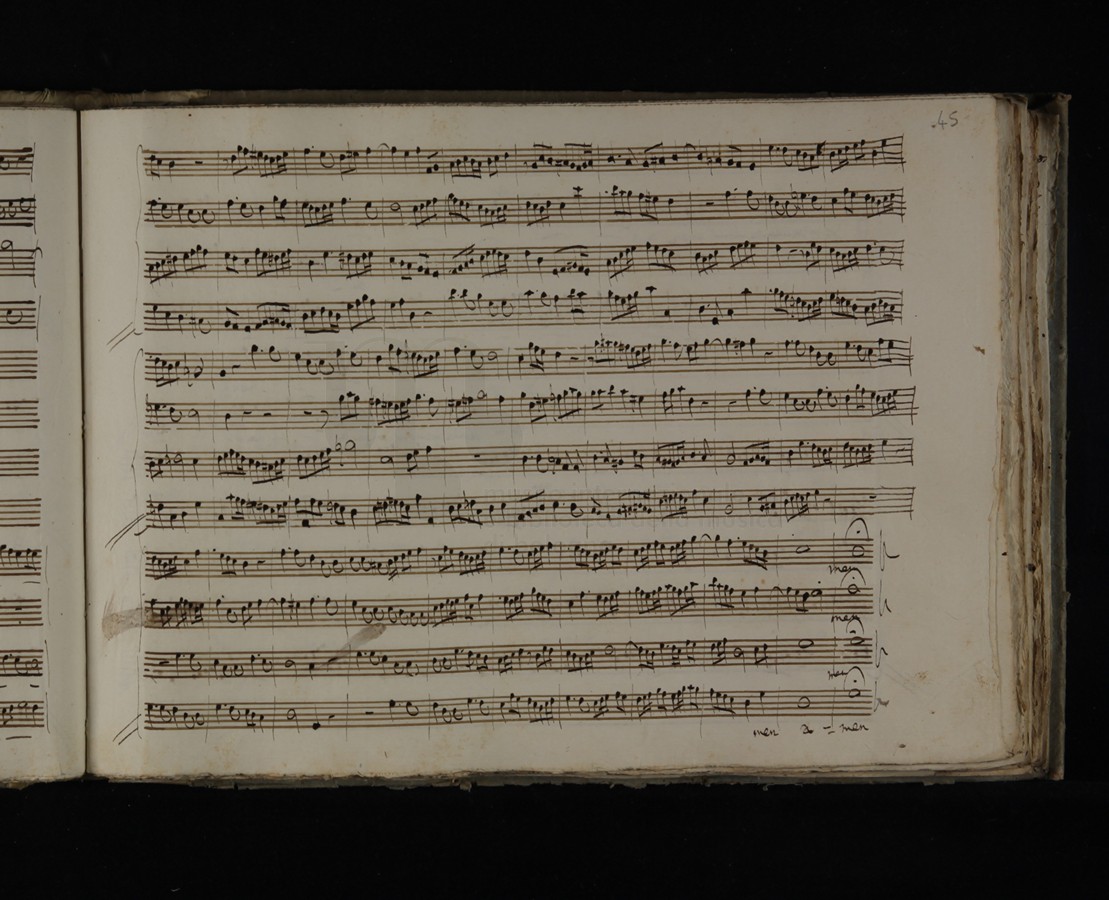 .45
men
men
men
men A - men